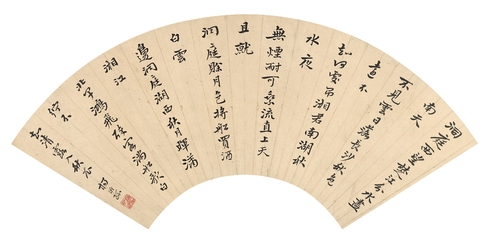 洞庭西望楚江分水盡
南天
不見雲日落長沙秋色
遠不
知何處吊湘君南湖秋
水夜
無煙耐可乘流直上天
且就
洞庭賒月色將船買酒
白雲
邊洞庭湖西秋月輝瀟
湘江
北早鴻飛醉客滿船歌白
紵不
知霜露入秋衣